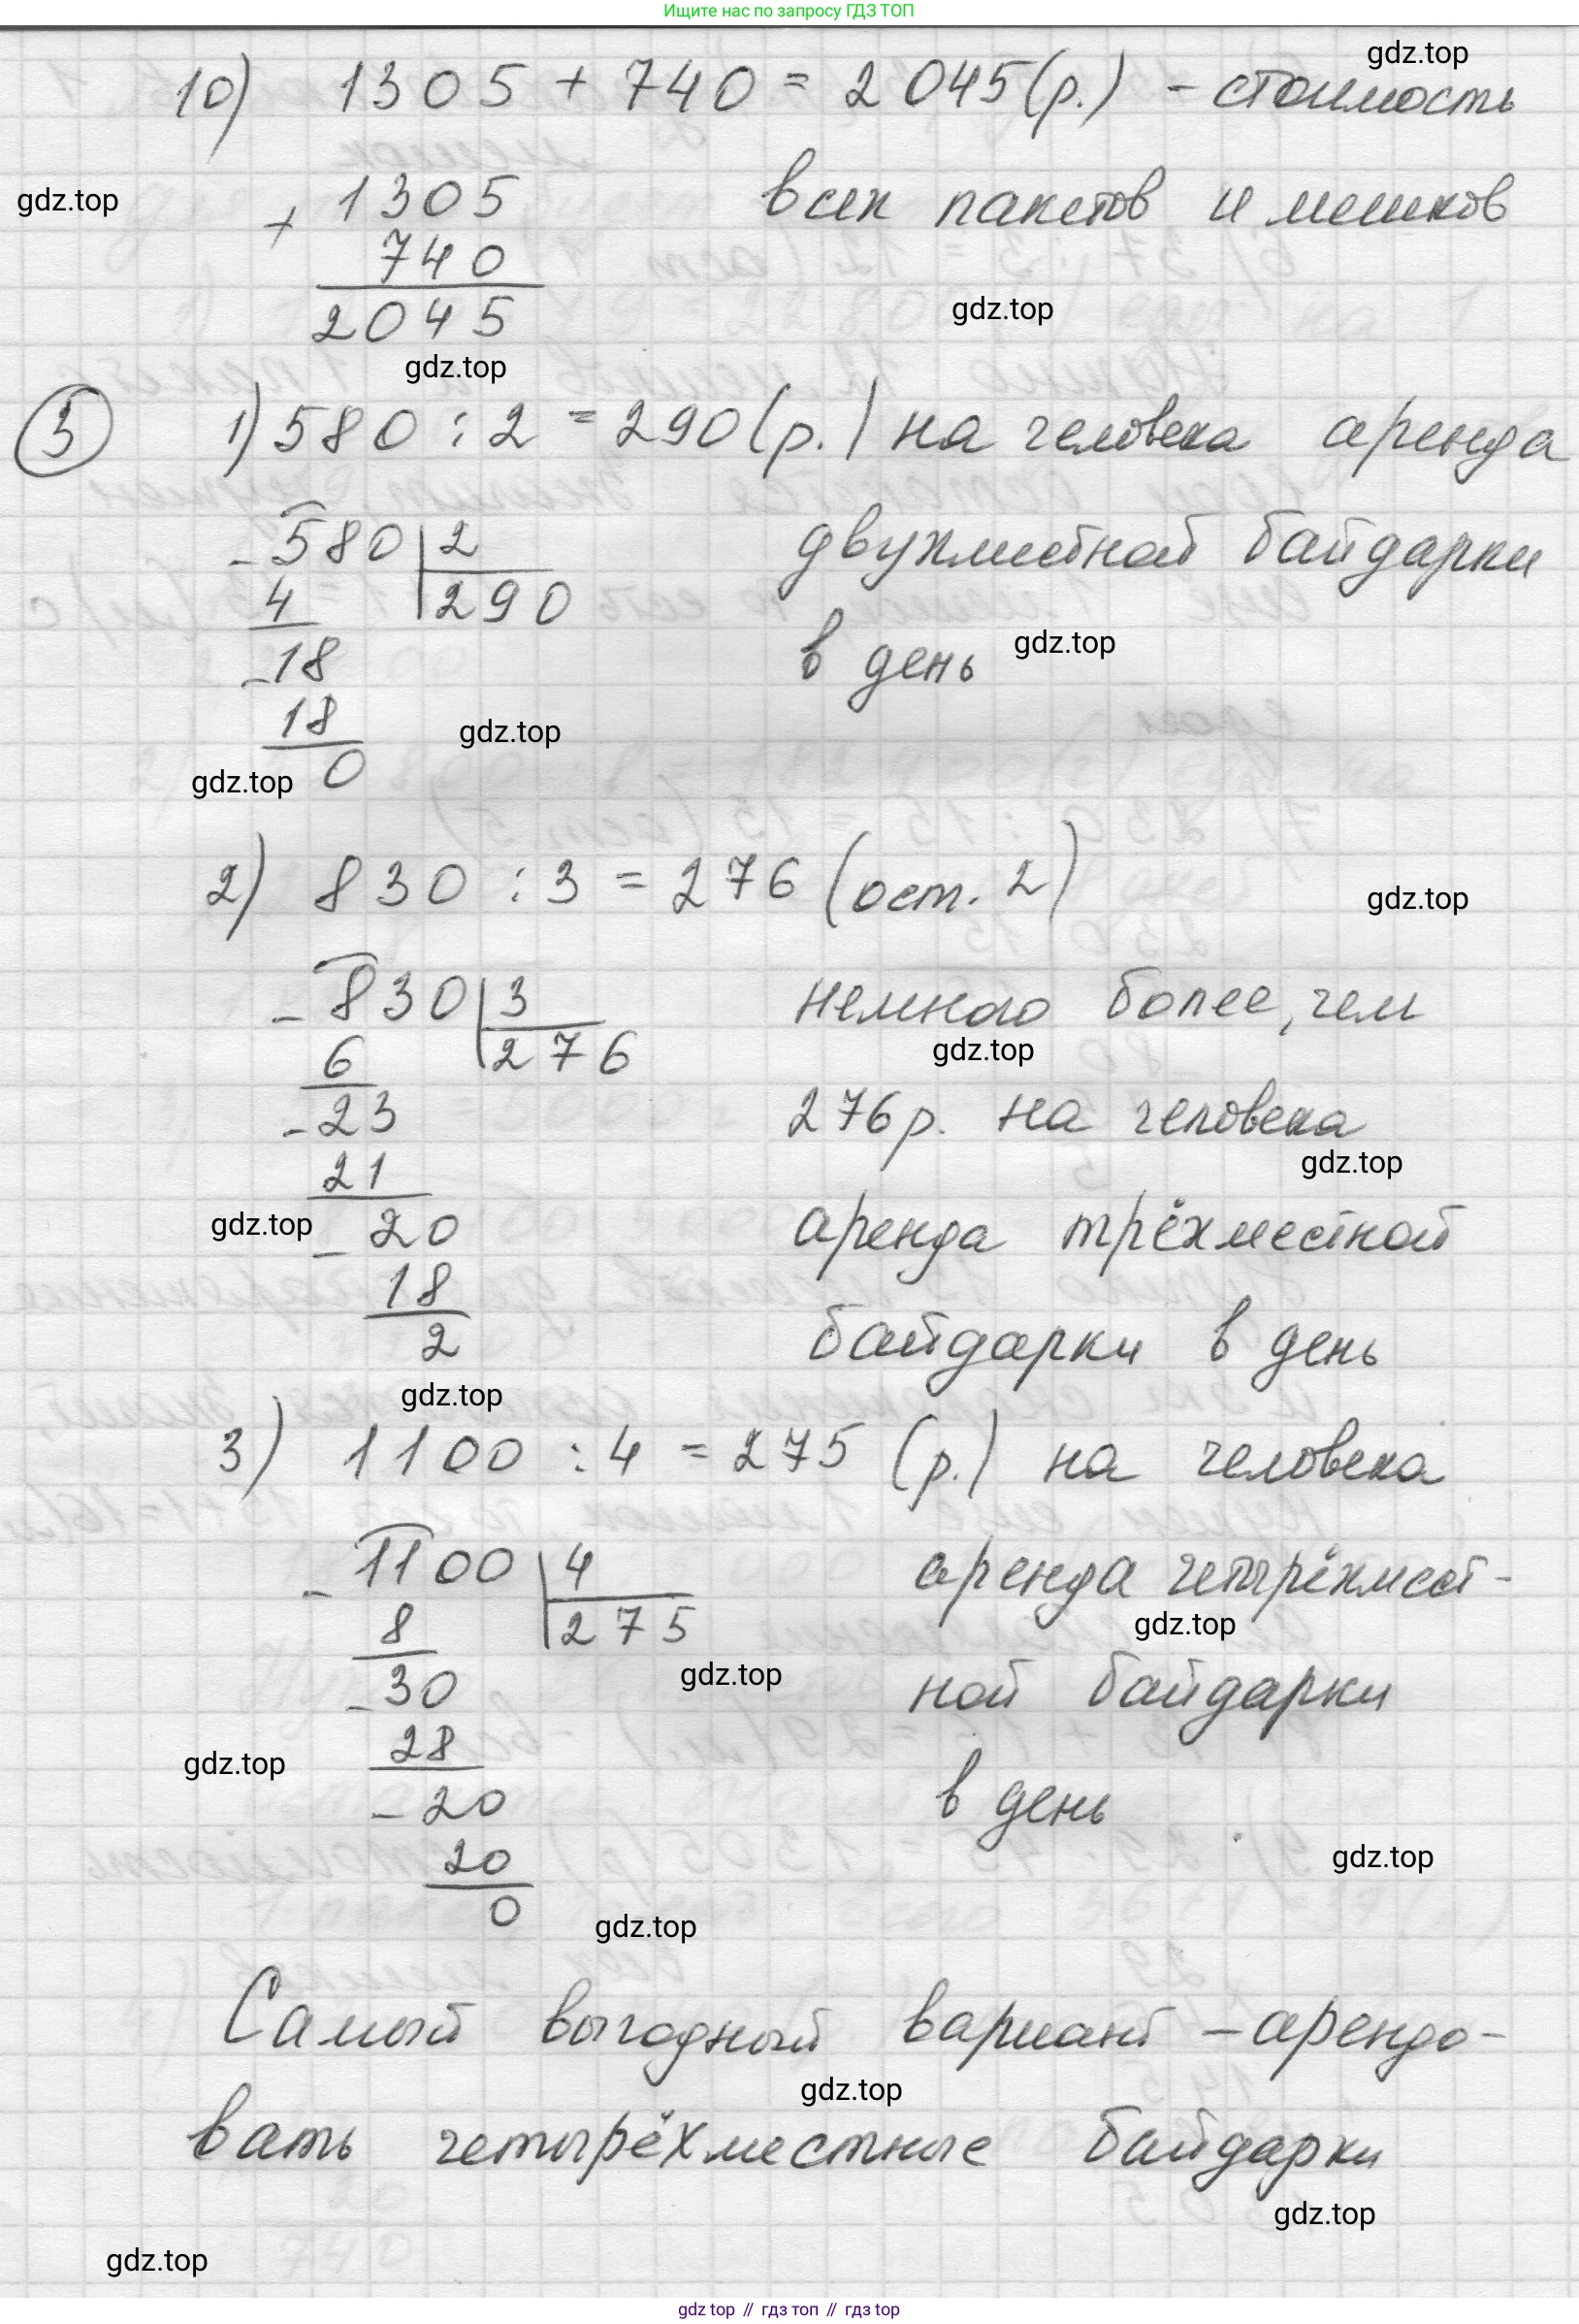 Ищите нас по запросу ГДЗ ТОП
gdz.top
10) 1305 + 740 = 2045 (р.) - стоимость
gdz.top
всех пакетов и мешков
+ 1305
740
2045
gdz.top
gdz.top
5 1) 580 : 2 = 290 (р.) на человека аренда
двухместной байдарки
в день
- 580 | 2
4 | 290
- 18
18
0
gdz.top
gdz.top
gdz.top
2) 830 : 3 = 276 (ост. 2)
gdz.top
немного более, чем
gdz.top
276 р. на человека
gdz.top
аренда трёхместной
байдарки в день
- 830 | 3
6 | 276
- 23
21
gdz.top
- 20
18
2
gdz.top
3) 1100 : 4 = 275 (р.) на человека
аренда четырёхмест-
gdz.top
ной байдарки
в день
- 1100 | 4
8 | 275
- 30
gdz.top
28
gdz.top
- 20
20
0
gdz.top
gdz.top
Самый выгодный вариант - арендо-
gdz.top
вать четырёхместные байдарки
gdz.top
gdz.top
gdz top // гдз топ // гдз top